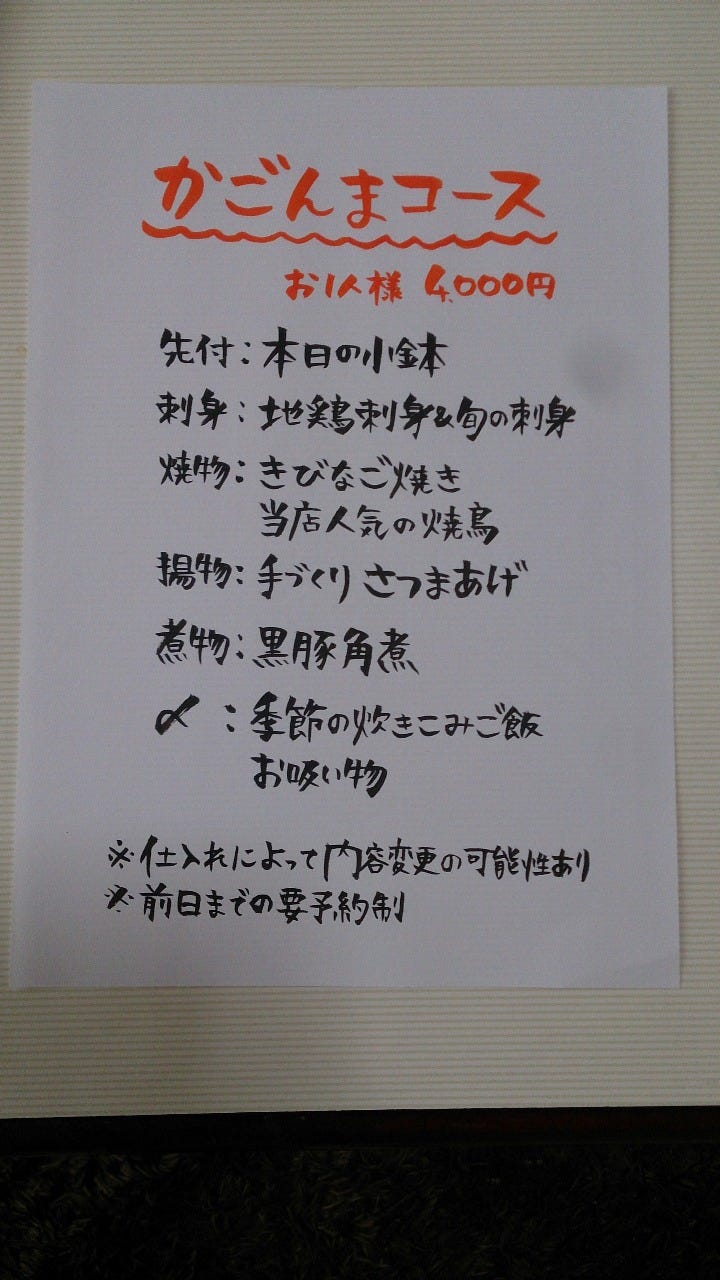 かごんまコース
お1人様 4,000円
先付:本日の小鉢
刺身:地鶏刺身&旬の刺身
焼物:きびなご焼き
当店人気の焼鳥
揚物:手づくりさつまあげ
煮物:黒豚角煮
〆:季節の炊きこみご飯
お吸い物
※仕入れによって内容変更の可能性あり
※前日までの要予約制